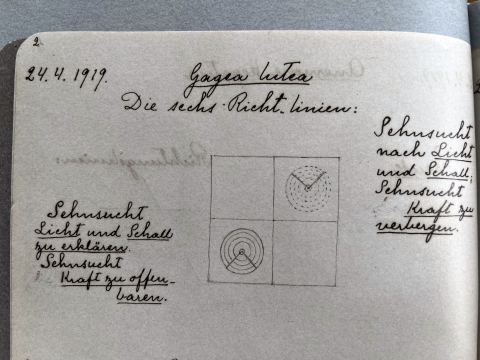 2.
24.4.1919.
Gagea lutea
Die sechs Richt-linien:
Sehnsucht
nach Licht
und Schall;
Sehnsucht
Kraft zu
verbergen.
Sehnsucht
Licht und Schall
zu erklären.
Sehnsucht
Kraft zu offen-
baren.